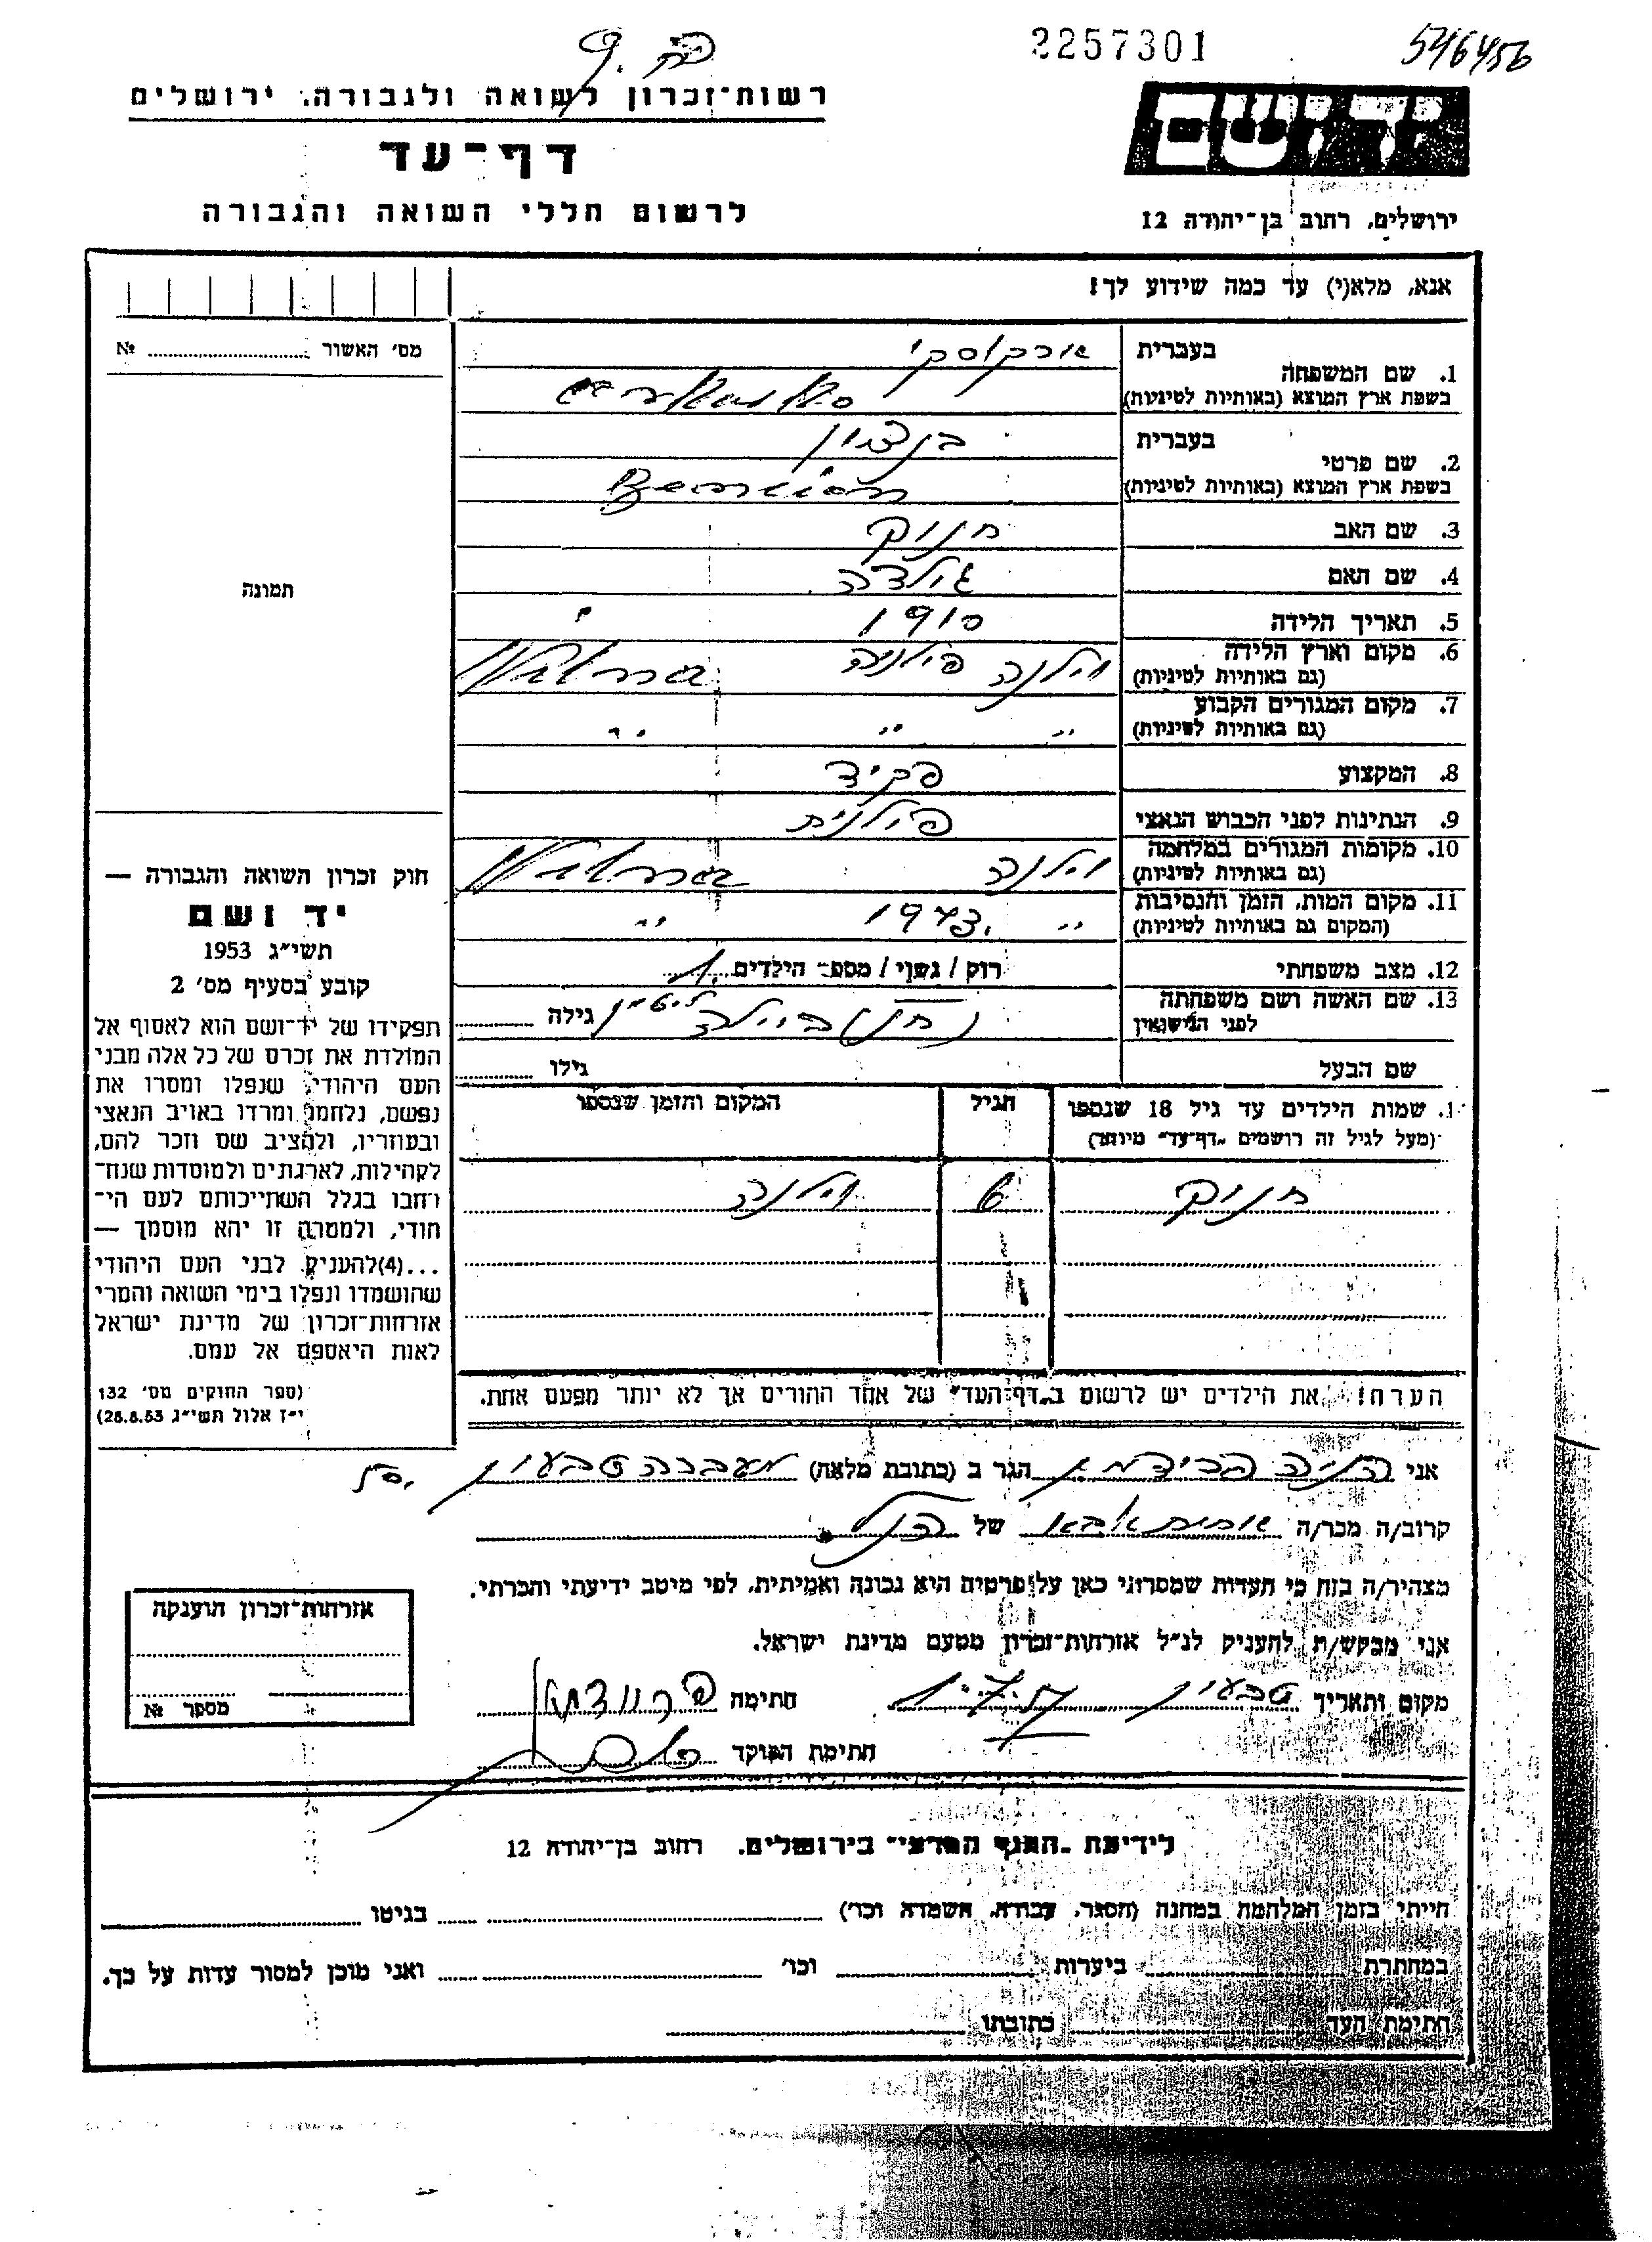 2257301
546456
רשות־זכרון לשואה ולגבורה, ירושלים
דף־עד
לרשום חללי השואה והגבורה
יד ושם
ירושלים, רחוב בן־יהודה 12
אנא, מלא(י) עד כמה שידוע לך!
מס׳ האשור № 
תמונה
1. שם המשפחה
בעברית
ארקוסקי
בשפת ארץ המוצא (באותיות לטיניות)
2. שם פרטי
בעברית
בנציון
בשפת ארץ המוצא (באותיות לטיניות)
Bencion
3. שם האב חנוק
4. שם האם גולדה
5. תאריך הלידה 1910
6. מקום וארץ הלידה
(גם באותיות לטיניות)
וילנה פולניה Wilna
7. מקום המגורים הקבוע
(גם באותיות לטיניות)
״ ״ ״
8. המקצוע פקיד
9. הנתינות לפני הכבוש הנאצי פולנית
10. מקומות המגורים במלחמה
(גם באותיות לטיניות)
וילנה Wilna
11. מקום המות, הזמן והנסיבות
(המקום גם באותיות לטיניות)
״ 1943. ״
12. מצב משפחתי רוק / נשוי / מספר הילדים 1.
13. שם האשה ושם משפחתה
לפני הנישואין
גילה
שם הבעל גילו
1. שמות הילדים עד גיל 18 שנספו
(מעל לגיל זה רושמים „דף־עד״ מיוחד)
הגיל
המקום והזמן שנספו
חנוק 6 וילנה
הערה! את הילדים יש לרשום ב„דף־העד״ של אחד ההורים אך לא יותר מפעם אחת.
חוק זכרון השואה והגבורה —
יד ושם
תשי״ג 1953
קובע בסעיף מס׳ 2
תפקידו של יד־ושם הוא לאסוף אל
המולדת את זכרם של כל אלה מבני
העם היהודי, שנפלו ומסרו את
נפשם, נלחמו ומרדו באויב הנאצי
ובעוזריו, ולהציב שם וזכר להם,
לקהילות, לארגונים ולמוסדות שנח־
רחבו בגלל השתייכותם לעם הי־
הודי, ולמטרה זו יהא מוסמך —
...(4) להעניק לבני העם היהודי
שהושמדו ונפלו בימי השואה והמרי
אזרחות־זכרון של מדינת ישראל
לאות היאספם אל עמם.
(ספר החוקים מס׳ 132
י״ז אלול תשי״ג 28.8.53)
אני הגר ב (כתובת מלאה) מעברה טבעון
קרוב/ה מכר/ה של הנ״ל
מצהיר/ה בזה כי העדות שמסרתי כאן על פרטיה היא נכונה ואמיתית, לפי מיטב ידיעתי והכרתי.
אני מבקש/ת להעניק לנ״ל אזרחות־זכרון מטעם מדינת ישראל.
מקום ותאריך טבעון חתימה
חתימת הפוקד
אזרחות־זכרון הוענקה
מספר №
לידיעת בירושלים. רחוב בן־יהודה 12
חייתי בזמן המלחמה במחנה (הסגר, עבודה, השמדה וכו׳) בגיטו
במחתרת ביערות וכו׳ ואני מוכן למסור עדות על כך.
חתימת העד כתובתו